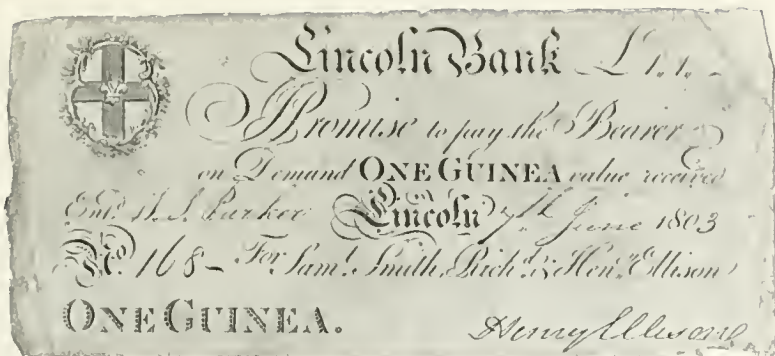 Lincoln Bank £1.1.-
I Promise to pay the Bearer
on Demand ONE GUINEA value received
Entd. Parker Lincoln 7th June 1803
No. 168 - For Saml. Smith, Richd. & Heny. Ellison
ONE GUINEA. Henry Ellison